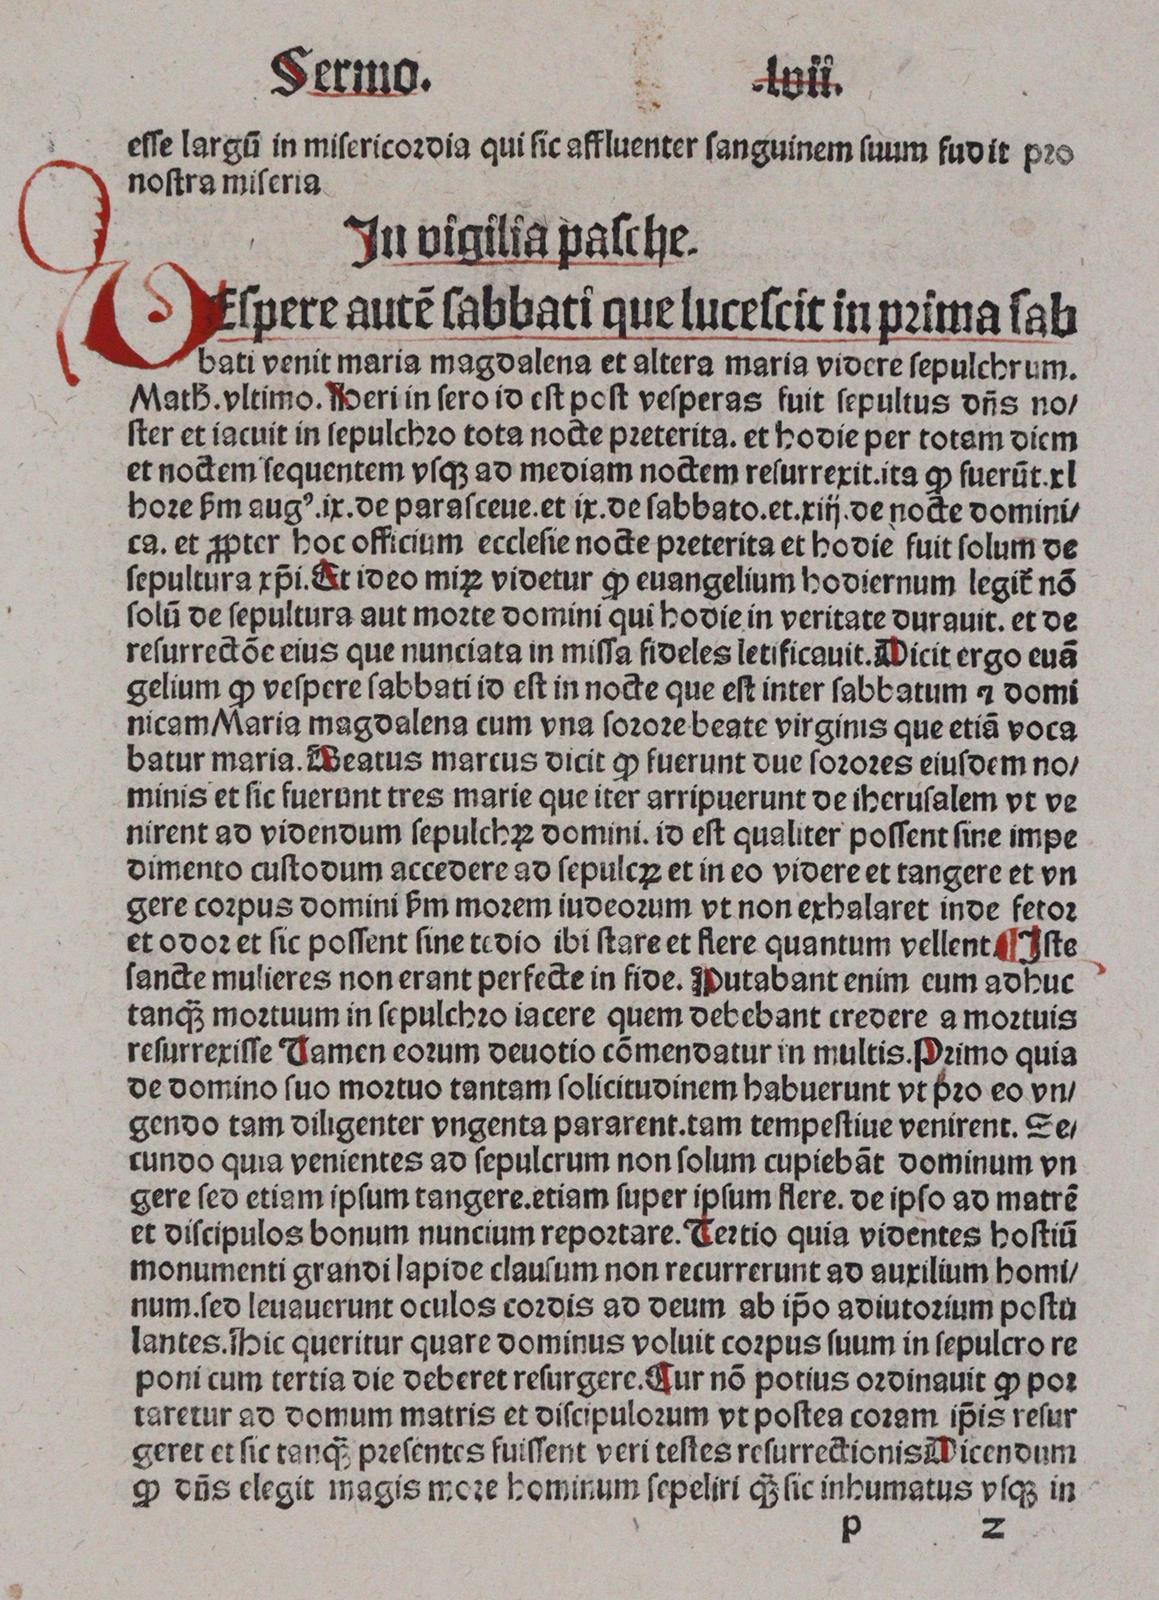 Sermo. .lvii.
esse largū in misericordia qui sic affluenter sanguinem suum fudit pro
nostra miseria
In vigilia pasche.
VEspere autē sabbati que lucescit in prima sab
bati venit maria magdalena et altera maria videre sepulchrum.
Math. vltimo. Heri in sero id est post vesperas fuit sepultus dn̄s no/
ster et iacuit in sepulchro tota nocte preterita. et hodie per totam diem
et noctem sequentem vsqꝫ ad mediam noctem resurrexit. ita ꝙ fuerūt .xl
hore ẜm augꝰ .ix. de parasceue. et ix. de sabbato. et .xiij. de nocte domini/
ca. et ꝓpter hoc officium ecclesie nocte preterita et hodie fuit solum de
sepultura xp̄i. Et ideo miꝝ videtur ꝙ euangelium hodiernum legit̃ nō
solū de sepultura aut morte domini qui hodie in veritate durauit. et de
resurrectōe eius que nunciata in missa fideles letificauit. Dicit ergo euā
gelium ꝙ vespere sabbati id est in nocte que est inter sabbatum ⁊ domi
nicam Maria magdalena cum vna sorore beate virginis que etiā voca
batur maria. Beatus marcus dicit ꝙ fuerunt due sorores eiusdem no/
minis et sic fuerunt tres marie que iter arripuerunt de iherusalem vt ve
nirent ad videndum sepulchꝝ domini. id est qualiter possent sine impe
dimento custodum accedere ad sepulcꝝ et in eo videre et tangere et vn
gere corpus domini ẜm morem iudeorum vt non exhalaret inde fetor
et odor et sic possent sine tedio ibi stare et flere quantum vellent. ¶ Iste
sancte mulieres non erant perfecte in fide. Putabant enim eum adhuc
tanqꝫ̄ mortuum in sepulchro iacere quem debebant credere a mortuis
resurrexisse Tamen eorum deuotio cōmendatur in multis. Primo quia
de domino suo mortuo tantam solicitudinem habuerunt vt pro eo vn/
gendo tam diligenter vngenta pararent. tam tempestiue venirent. Se/
cundo quia venientes ad sepulcrum non solum cupiebāt dominum vn
gere sed etiam ipsum tangere. etiam super ipsum flere. de ipso ad matrē
et discipulos bonum nuncium reportare. Tertio quia videntes hostiū
monumenti grandi lapide clausum non recurrerunt ad auxilium homi/
num. sed leuauerunt oculos cordis ad deum ab ip̄o adiutorium postu
lantes. Hic queritur quare dominus voluit corpus suum in sepulcro re
poni cum tertia die deberet resurgere. Cur nō potius ordinauit ꝙ por
taretur ad domum matris et discipulorum vt postea coram ip̄is resur
geret et sic tanqꝫ̄ presentes fuissent veri testes resurrectionis Dicendum
ꝙ dn̄s elegit magis more hominum sepeliri qꝫ̄ sic inhumatus vsqꝫ in
p 2